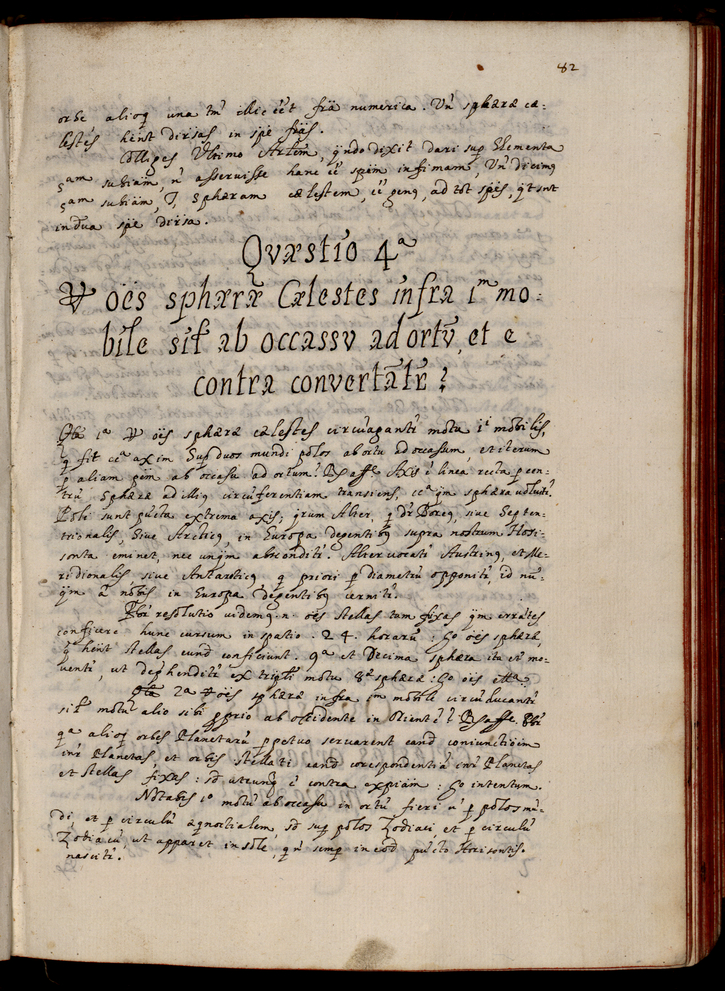 82
orbe alioq̃ una tm̃ illic ēet frã numerica. Vñ sphæræ cæ:
lestes hẽnt divsas in spẽ frãs.
Colliges Ultimo Artem, qñdo dixit dari sup Elementa
5am subiam, ñ asseruisse hanc ẽe spẽm infimam, Vñ dicimq
5am subiam, I, Sphæram cælestem, ẽe genq, ad tot spẽs, qt snt
indua spẽ divsa.
Qvæstio 4ª
Vt ões sphæræ Cælestes infra 1m mo:
bile sit ab occassv ad ortũ, et e
contra convertãtr?
1ª Vt ões sphæræ cælestes circũagantr motu 1i mobilis,
q̃ fit cca axim Sup duos mundi polos ab ortu ad occasum, et iterum
p aliam ptem ab occasu ad ortum? Rs affe. Axis ẽ linea recta p cen:
trũ Sphæræ ad illiq circũferentiam transiens, cca qm sphæra uoluitr.
Poli sunt pũcta extrema axis; qrum Alter, q dr Boreq, siue Septen:
trionalis, siue Arcticq, in Europa degentibq supra nostrum Hori:
sonta eminet, nec unqm absconditr. Alter uocatr Austrinq, et Me:
ridionalis, siue Antarcticq q priori p diametrũ opponitr, id nũ:
qm a nobis in Europa degentibq cernitr.
resolutio uidemq. n. ões stellas tam fixas qm errãtes
conficere hunc cursum in spatio. 24. horarũ: Go ões sphæræ,
q̃ hẽnt stellas eund conficiunt. 9ª et Decima sphæra ita et mo:
uentr, ut dephenditr ex tripli motu 8ª sphæræ: Go ões
2ª Vt ões sphæræ infra 1m mobile circũducantr
sit motu alio sibi pprio ab occidente in Orientẽ? Rs affe.
qa alioq orbes Planetarũ ppetuo seruarent eand coniunctiõem
intr Planetas, et orbis stellati eand corespondentiã intr Planetas
et stellas fixas: sd utrunq ẽ contra expiam: Go intentum.
Notabis 1o motũ ab occasu in ortũ fieri ñ p polos mũ:
di, et p circulũ æqnoctialem, sd sup polos Zodiaci, et p circulũ
Zodiacũ, ut apparet in sole, qi ñ semp in eod pũcto Horisontis
nascitr.